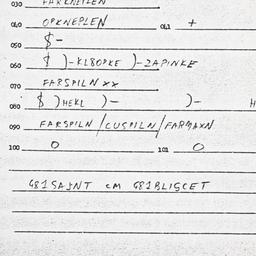 030 FARKNEPLEN
040 OPKNEPLEN 041 +
050 $-
060 $ )-KL8OPKE )-ZAPINKE
070 FARSPILN xx
080 $ )HEKL )- )- H
090 FARSPILN/CUSPILN/FARMAXN
100 O 101 O
G81SAJNT CM G81BLISCET